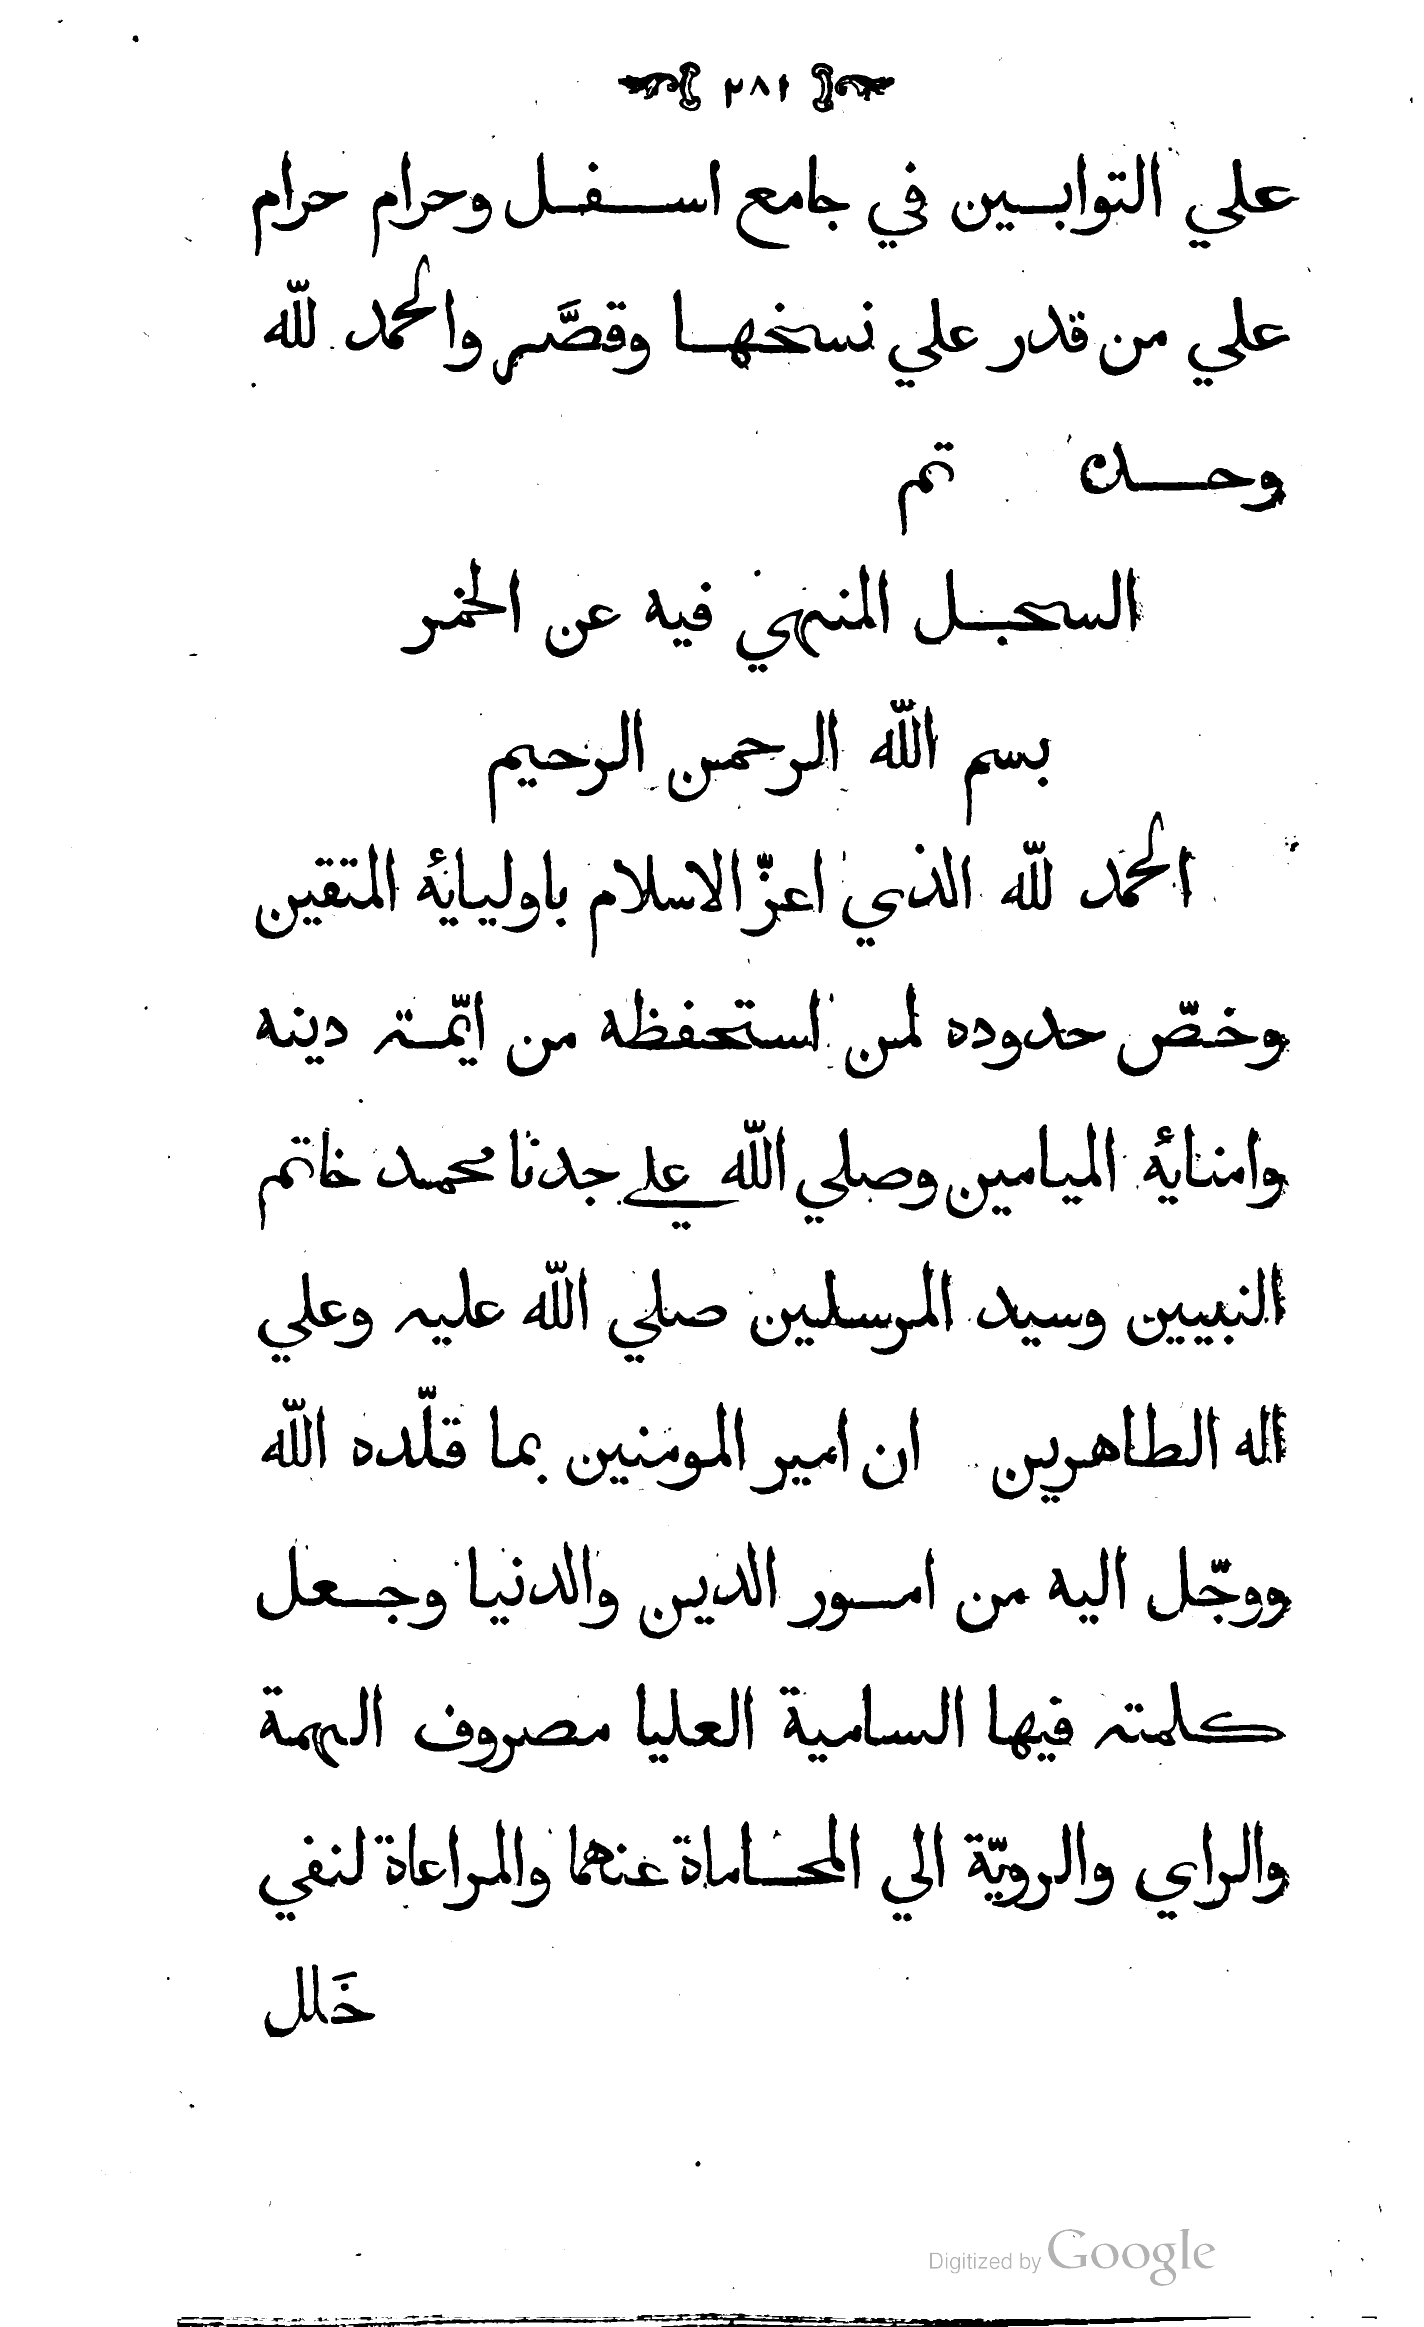 ٢٨١
علي التوابين في جامع اسفل وحرام حرام
علي من قدر علي نسخها وقصَّر والحمد للّه
وحده تم
السجل المنهي فيه عن الخمر
بسم اللّه الرحمن الرحيم
الحمد للّه الذي اعزّ الاسلام باوليائه المتقين
وخصّ حدوده لمن استحفظه من ايّمة دينه
وامنائه الميامين وصلي اللّه علي جدنا محمد خاتم
النبيين وسيد المرسلين صلي اللّه عليه وعلي
اله الطاهرين ان امير المومنين بما قلّده اللّه
ووجّل اليه من امور الدين والدنيا وجعل
كلمته فيها السامية العليا مصروف الهمة
والراي والرويّة الي المحاماة عنهما والمراعاة لنفي
خَلل
Digitized by Google